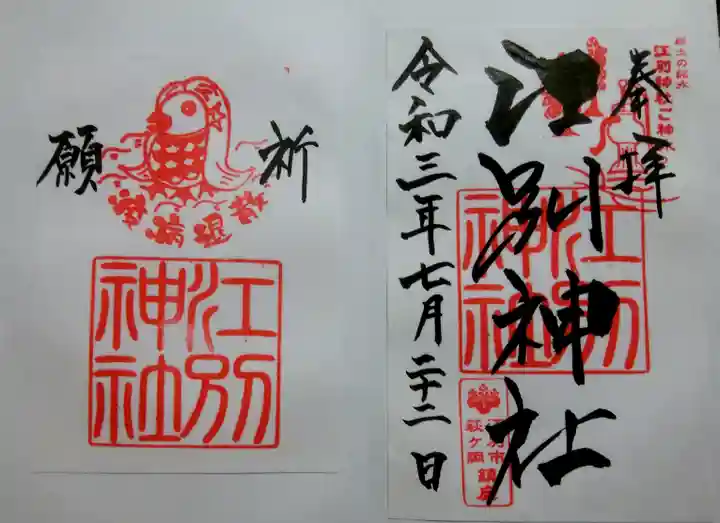 奉拝
郷土の銘水
江別神社ご神水
江別神社
江別神社
江別市
萩ヶ岡
鎮座
令和三年七月二十二日
祈願
疫病退散
江別神社